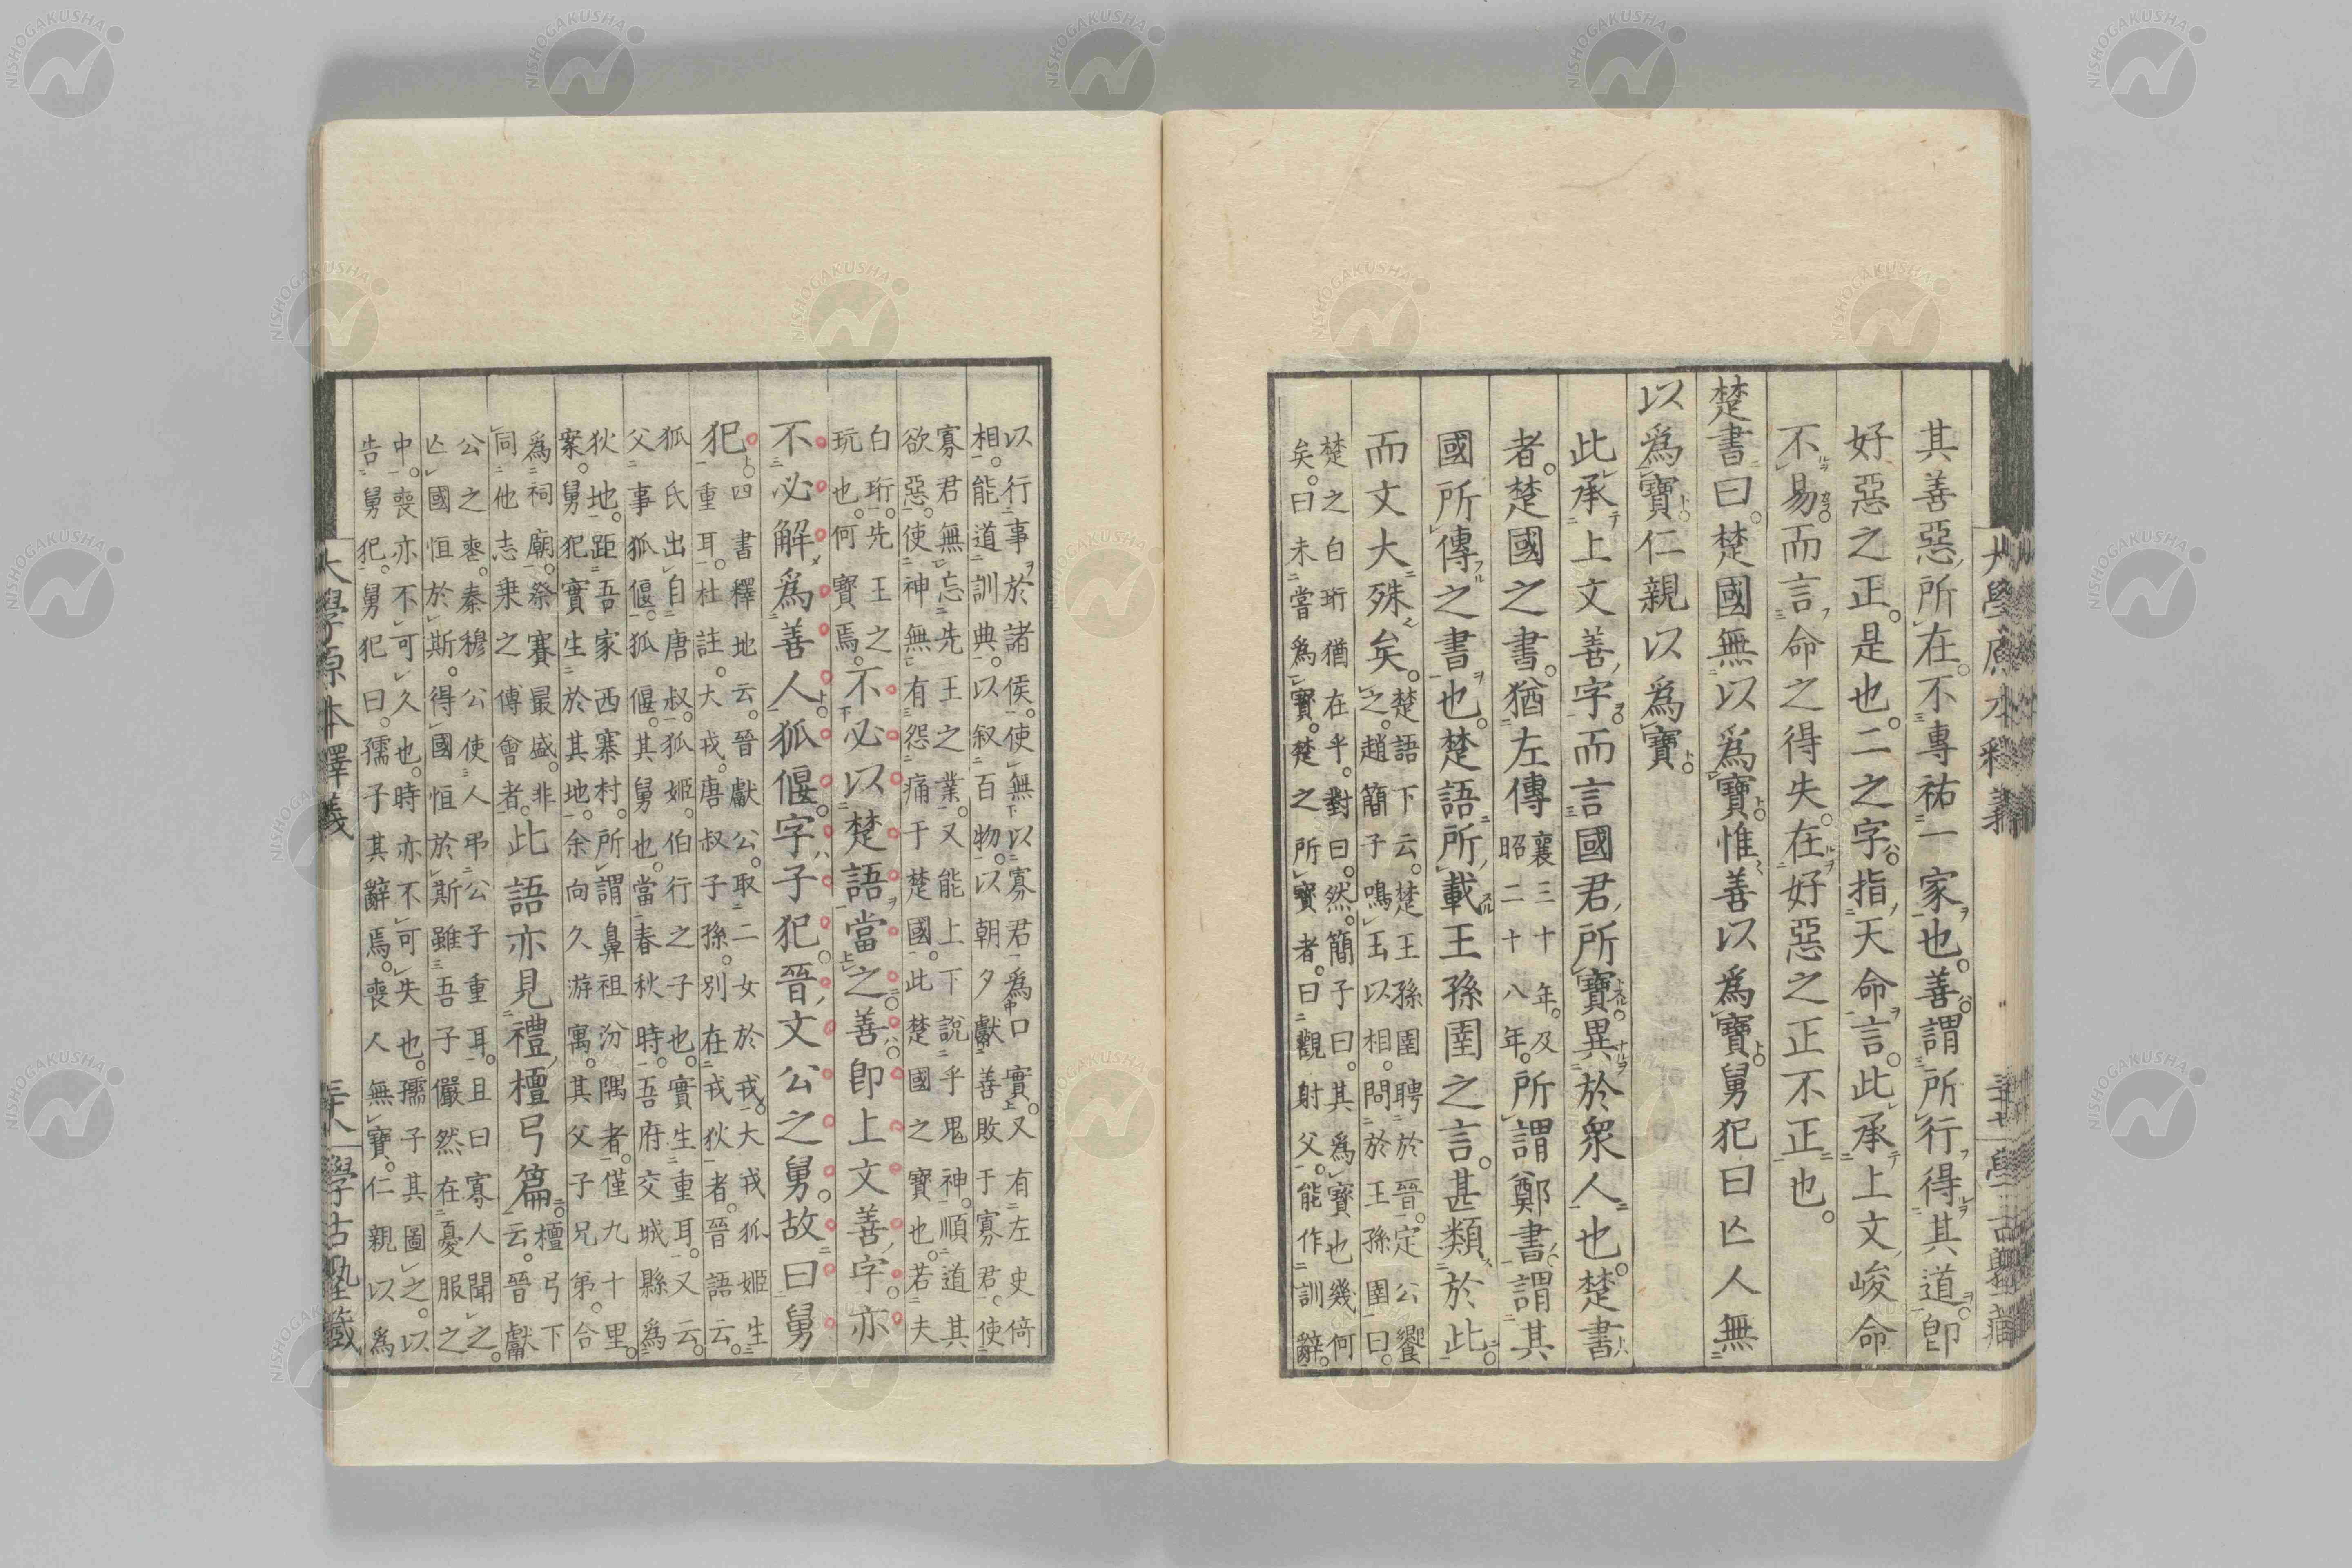 其善惡所在。不專祐一家也。善謂所行得其道。卽
好惡之正。是也。二之字。指天命言。此承上文峻命
不易而言。命之得失。在好惡之正不正也。
楚書曰。楚國無以爲寶。惟善以爲寶。舅犯曰亾人無
以爲寶。仁親以爲寶。
此承上文善字。而言國君所寶。異於衆人也。楚書
者。楚國之書。猶左傳襄三十年。及昭二十八年。所謂鄭書。謂其
國所傳之書也。楚語所載王孫圉之言。甚類於此。
而文大殊矣。楚語下云。楚王孫圉聘於晉。定公饗之。趙簡子鳴玉以相。問於王孫圉曰。
楚之白珩猶在乎。對曰。然。簡子曰。其爲寶也幾何矣。曰未嘗爲寶。楚之所寶者。曰觀射父。能作訓辭。
以行事於諸侯。使無以寡君爲口實。又有左史倚相。能道訓典。以叙百物。以朝夕獻善敗于寡君。使
寡君無忘先王之業。又能上下說乎鬼神。順道其欲惡。使神無有怨痛于楚國。此楚國之寶也。若夫
白珩。先王之玩也。何寶焉。不必以楚語當之。善卽上文善字。亦
不必解爲善人。狐偃。字子犯。晉文公之舅。故曰舅
犯。四書釋地云。晉獻公。取二女於戎。大戎狐姬生重耳。杜註。大戎。唐叔子孫。別在戎狄者。晉語云。
狐氏出自唐叔。狐姬。伯行之子也。實生重耳。又云。父事狐偃。狐偃。其舅也。當春秋時。吾府交城縣爲
狄地。距吾家西寨村。所謂鼻祖汾隅者。僅九十里。案。舅犯實生於其地。余向久游寓。其父子兄弟。合
爲祠廟。祭賽最盛。非同他志乘之傳會者。此語亦見禮檀弓篇。云。檀弓下晉獻
公之喪。秦穆公使人弔公子重耳。且曰寡人聞之。亾國恒於斯。得國恒於斯雖吾子儼然在憂服之
中。喪亦不可久也。時亦不可失也。孺子其圖之。以告舅犯。舅犯曰。孺子其辭焉。喪人無寶。仁親以爲
大學原本釋義
三十八
學古塾藏
NISHOGAKUSHA